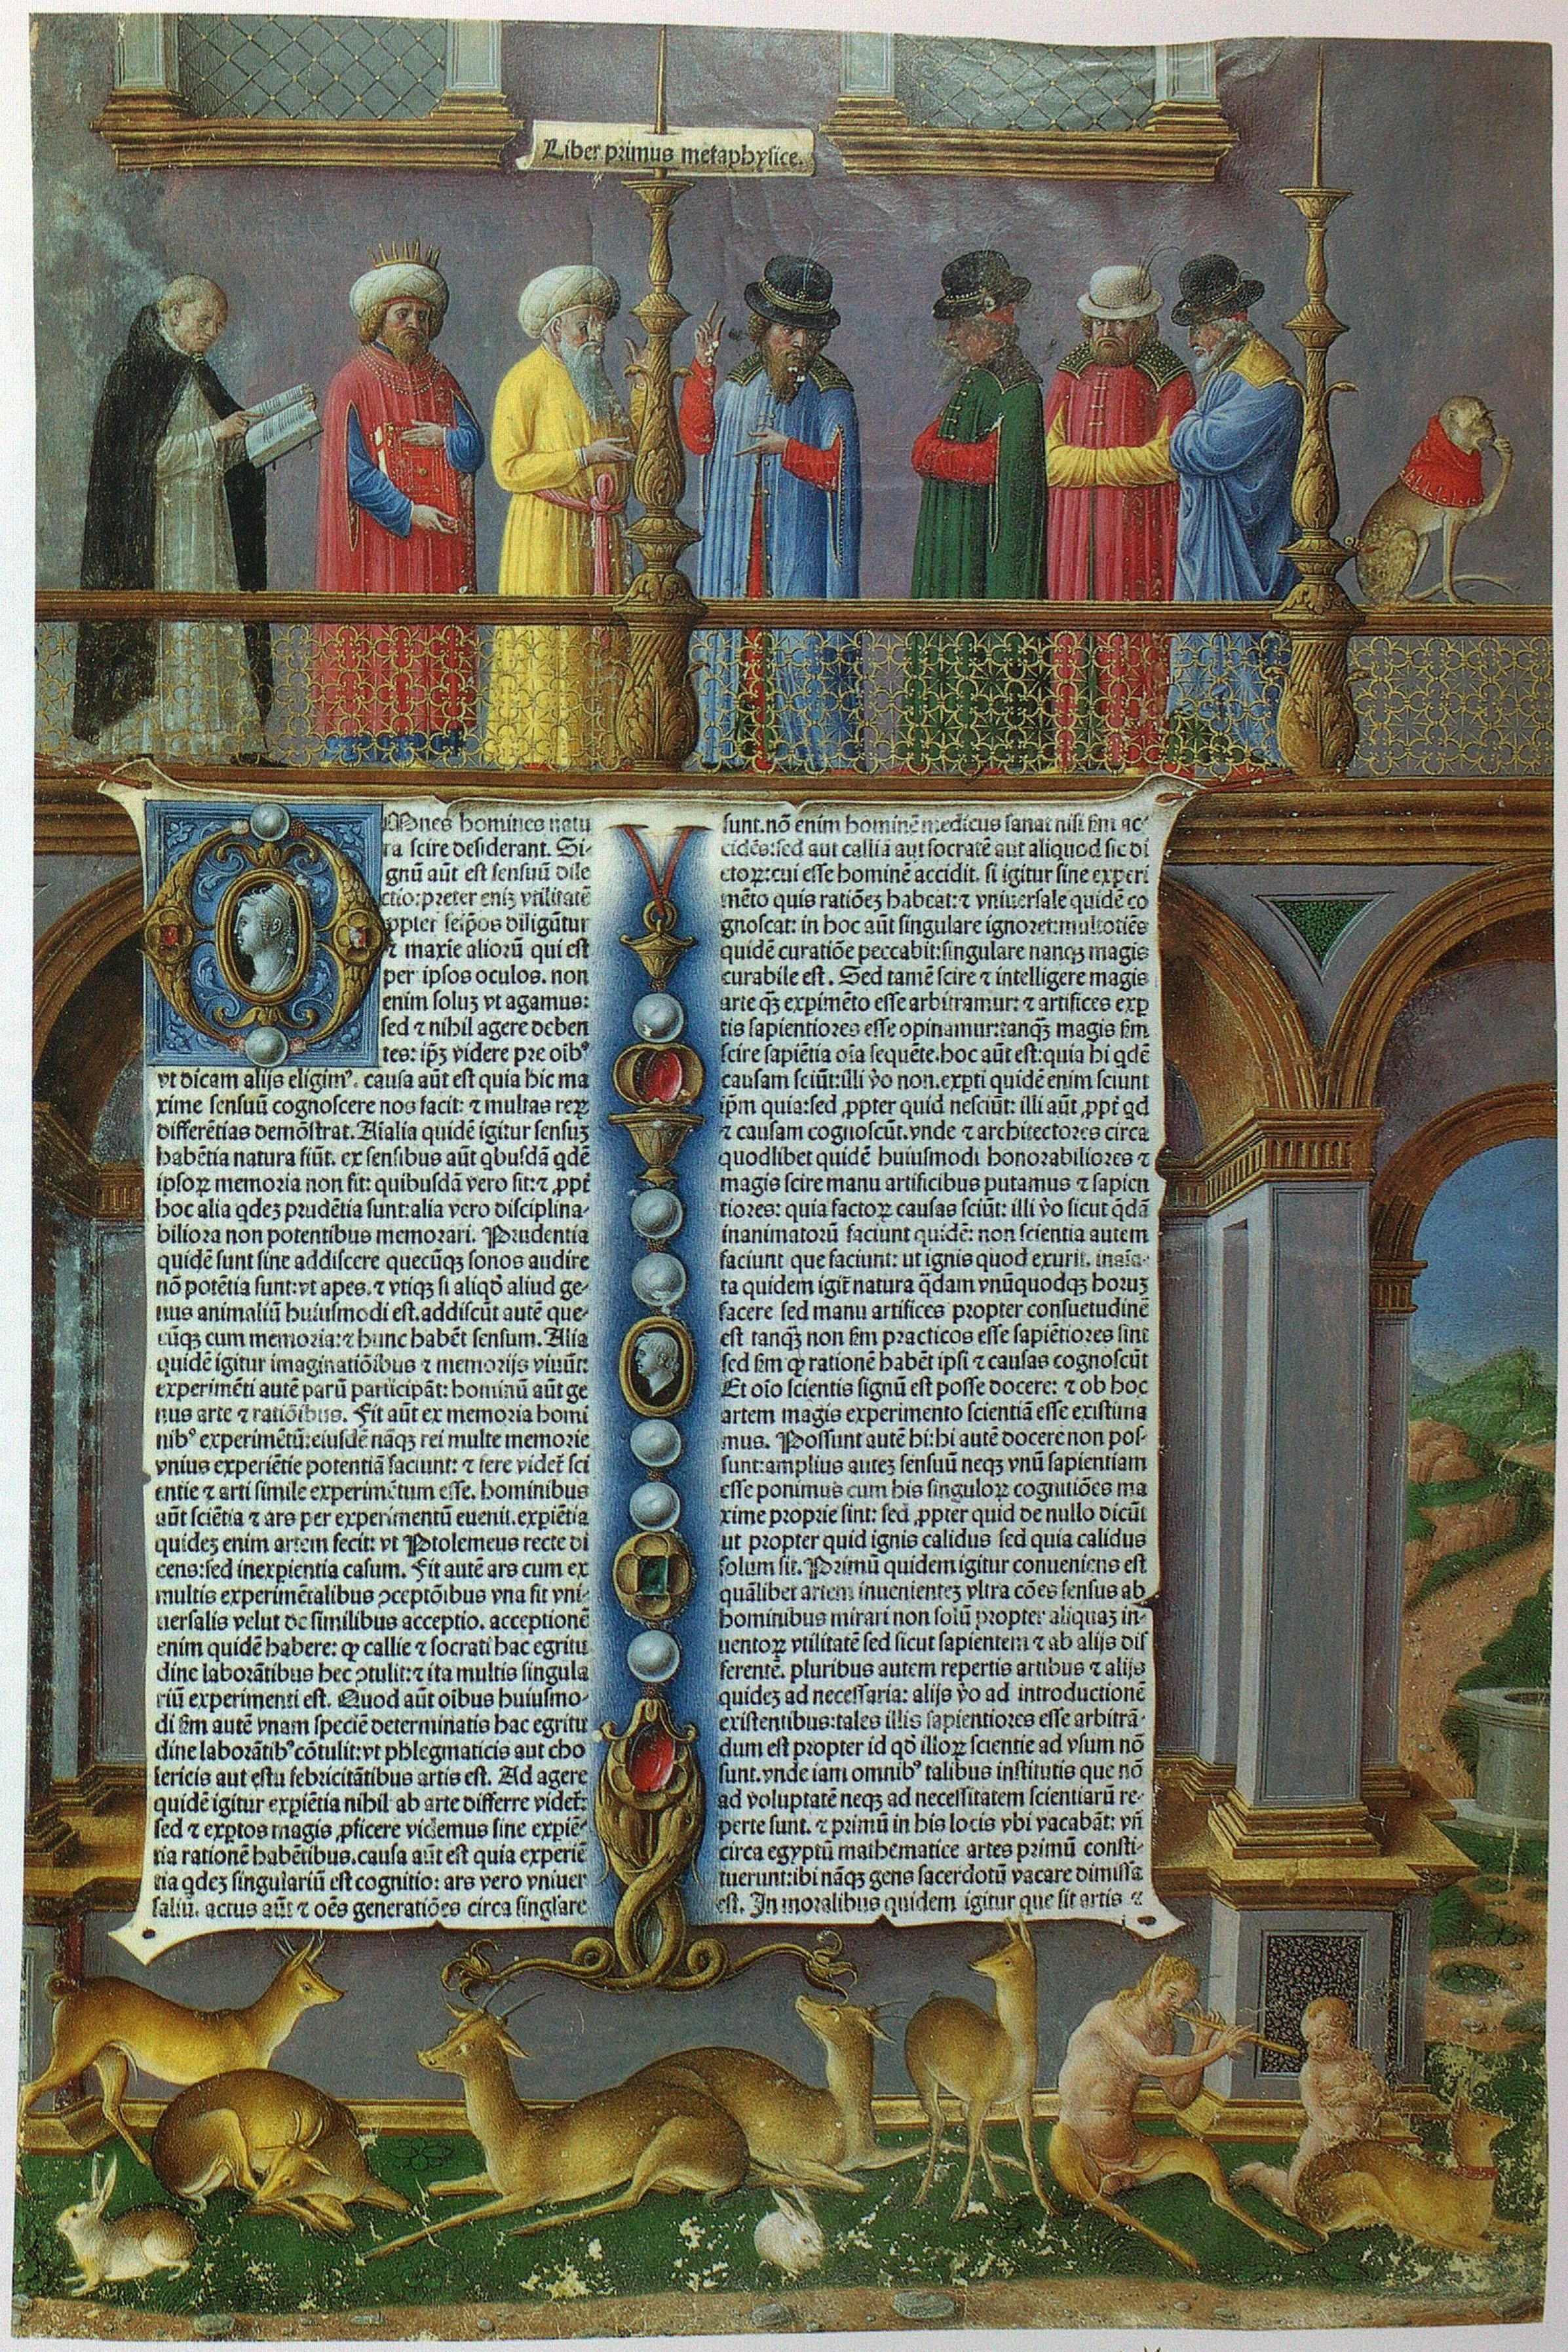 Liber primus metaphysice.
Omnes homines natu
ra scire desiderant. Si-
gnū aūt est sensuū dile
ctio: preter eniꝫ vtilitatē
ꝓpter seip̄os diligūtur
⁊ maxie aliorū qui est
per ipsos oculos. non
enim soluꝫ vt agamus:
sed ⁊ nihil agere deben
tes: ip̄ꝫ videre pre oib⁹
vt dicam alijs eligim⁹. causa aūt est quia hic ma
xime sensuū cognoscere nos facit: ⁊ multas reꝝ
differētias demōstrat. Aīalia quidē igitur sensuꝫ
habētia natura fiūt. ex sensibus aūt qbusdā qdē
ipsoꝝ memoria non fit: quibusdā vero fit: ⁊ ꝓpt̄
hoc alia qdeꝫ prudētia sunt: alia vero disciplina-
biliora non potentibus memorari. Prudentia
quidē sunt sine addiscere quecūqꝫ sonos audire
nō potētia sunt: vt apes. ⁊ vtiqꝫ si aliqd̄ aliud ge-
nus animaliū huiusmodi est. addiscūt autē que-
cūqꝫ cum memoria: ⁊ hunc habēt sensum. Alia
quidē igitur imaginatiōibus ⁊ memorijs viuūt:
experimēti autē parū participāt: hominū aūt ge
nus arte ⁊ ratiōibus. Fit aūt ex memoria homi
nib⁹ experimētū: eiusdē nāqꝫ rei multe memorie
vnius experiētie potentiā faciunt: ⁊ fere videt̄ sci
entie ⁊ arti simile experimētum esse. hominibus
aūt sciētia ⁊ ars per experimentū euenit. expiētia
quideꝫ enim artem fecit: vt Ptolemeus recte di
cens: sed inexpientia casum. Fit autē ars cum ex
multis experimētalibus ꝯceptōibus vna fit vni-
uersalis velut de similibus acceptio. acceptionē
enim quidē habere: ꝙ callie ⁊ socrati hac egritu
dine laborātibus hec ꝯtulit: ⁊ ita multis singula
riū experimenti est. Quod aūt oibus huiusmo-
di ẜm autē vnam speciē determinatis hac egritu
dine laborātib⁹ cōtulit: vt phlegmaticis aut cho
lericis aut estu febricitātibus artis est. Ad agere
quidē igitur expiētia nihil ab arte differre videt̄:
sed ⁊ exp̄tos magis ꝓficere videmus sine expiē-
tia rationē habētibus. causa aūt est quia experiē
tia qdeꝫ singulariū est cognitio: ars vero vniuer
saliū. actus aūt ⁊ oēs generatiōes circa singl̄are
sunt. nō enim hominē medicus sanat nisi ẜm ac-
cidēs: sed aut calliā aut socratē aut aliquod sic di
ctoꝝ: cui esse hominē accidit. si igitur sine experi
mēto quis ratiōeꝫ habeat: ⁊ vniuersale quidē co
gnoscat: in hoc aūt singulare ignoret: multotiēs
quidē curatiōe peccabit: singulare nanqꝫ magis
curabile est. Sed tamē scire ⁊ intelligere magis
arte qꝫ expimēto esse arbitramur: ⁊ artifices exp
tis sapientiores esse opinamur: tanqꝫ magis ẜm
scire sapiētia oīa sequēte. hoc aūt est: quia hi qdē
causam sciūt: illi v̄o non. exp̄ti quidē enim sciunt
ip̄m quia: sed ꝓpter quid nesciūt: illi aūt ꝓpt̄ qd
⁊ causam cognoscūt. vnde ⁊ architectores circa
quodlibet quidē huiusmodi honorabiliores ⁊
magis scire manu artificibus putamus ⁊ sapien
tiores: quia factoꝝ causas sciūt: illi v̄o sicut qdā
inanimatorū faciunt quidē: non scientia autem
faciunt que faciunt: ut ignis quod exurit. inaīa-
ta quidem igit̄ natura qdam vnūquodqꝫ horuꝫ
facere sed manu artifices propter consuetudinē
est tanqꝫ non ẜm practicos esse sapiētiores sint
sed ẜm ꝙ rationē habēt ipsi ⁊ causas cognoscūt
Et oīo scientis signū est posse docere: ⁊ ob hoc
artem magis experimento scientiā esse existima
mus. Possunt autē hi: hi autē docere non pos-
sunt: amplius auteꝫ sensuū neqꝫ vnū sapientiam
esse ponimus cum his singuloꝝ cognitiōes ma
xime proprie sint: sed ꝓpter quid de nullo dicūt
ut propter quid ignis calidus sed quia calidus
solum sit. Primū quidem igitur conueniens est
quālibet artem inuenienteꝫ vltra cōes sensus ab
hominibus mirari non solū propter aliquaꝫ in-
uentoꝝ vtilitatē sed sicut sapientem ⁊ ab alijs dif
ferentē. pluribus autem repertis artibus ⁊ alijs
quideꝫ ad necessaria: alijs v̄o ad introductionē
existentibus: tales illis sapientiores esse arbitrā-
dum est propter id qd̄ illoꝝ scientie ad vsum nō
sunt. vnde iam omnib⁹ talibus institutis que nō
ad voluptatē neqꝫ ad necessitatem scientiarū re-
perte sunt. ⁊ primū in his locis vbi vacabāt: vn̄
circa egyptū mathematice artes primū consti-
tuerunt: ibi nāqꝫ gens sacerdotū vacare dimissa
est. In moralibus quidem igitur que sit artis ⁊